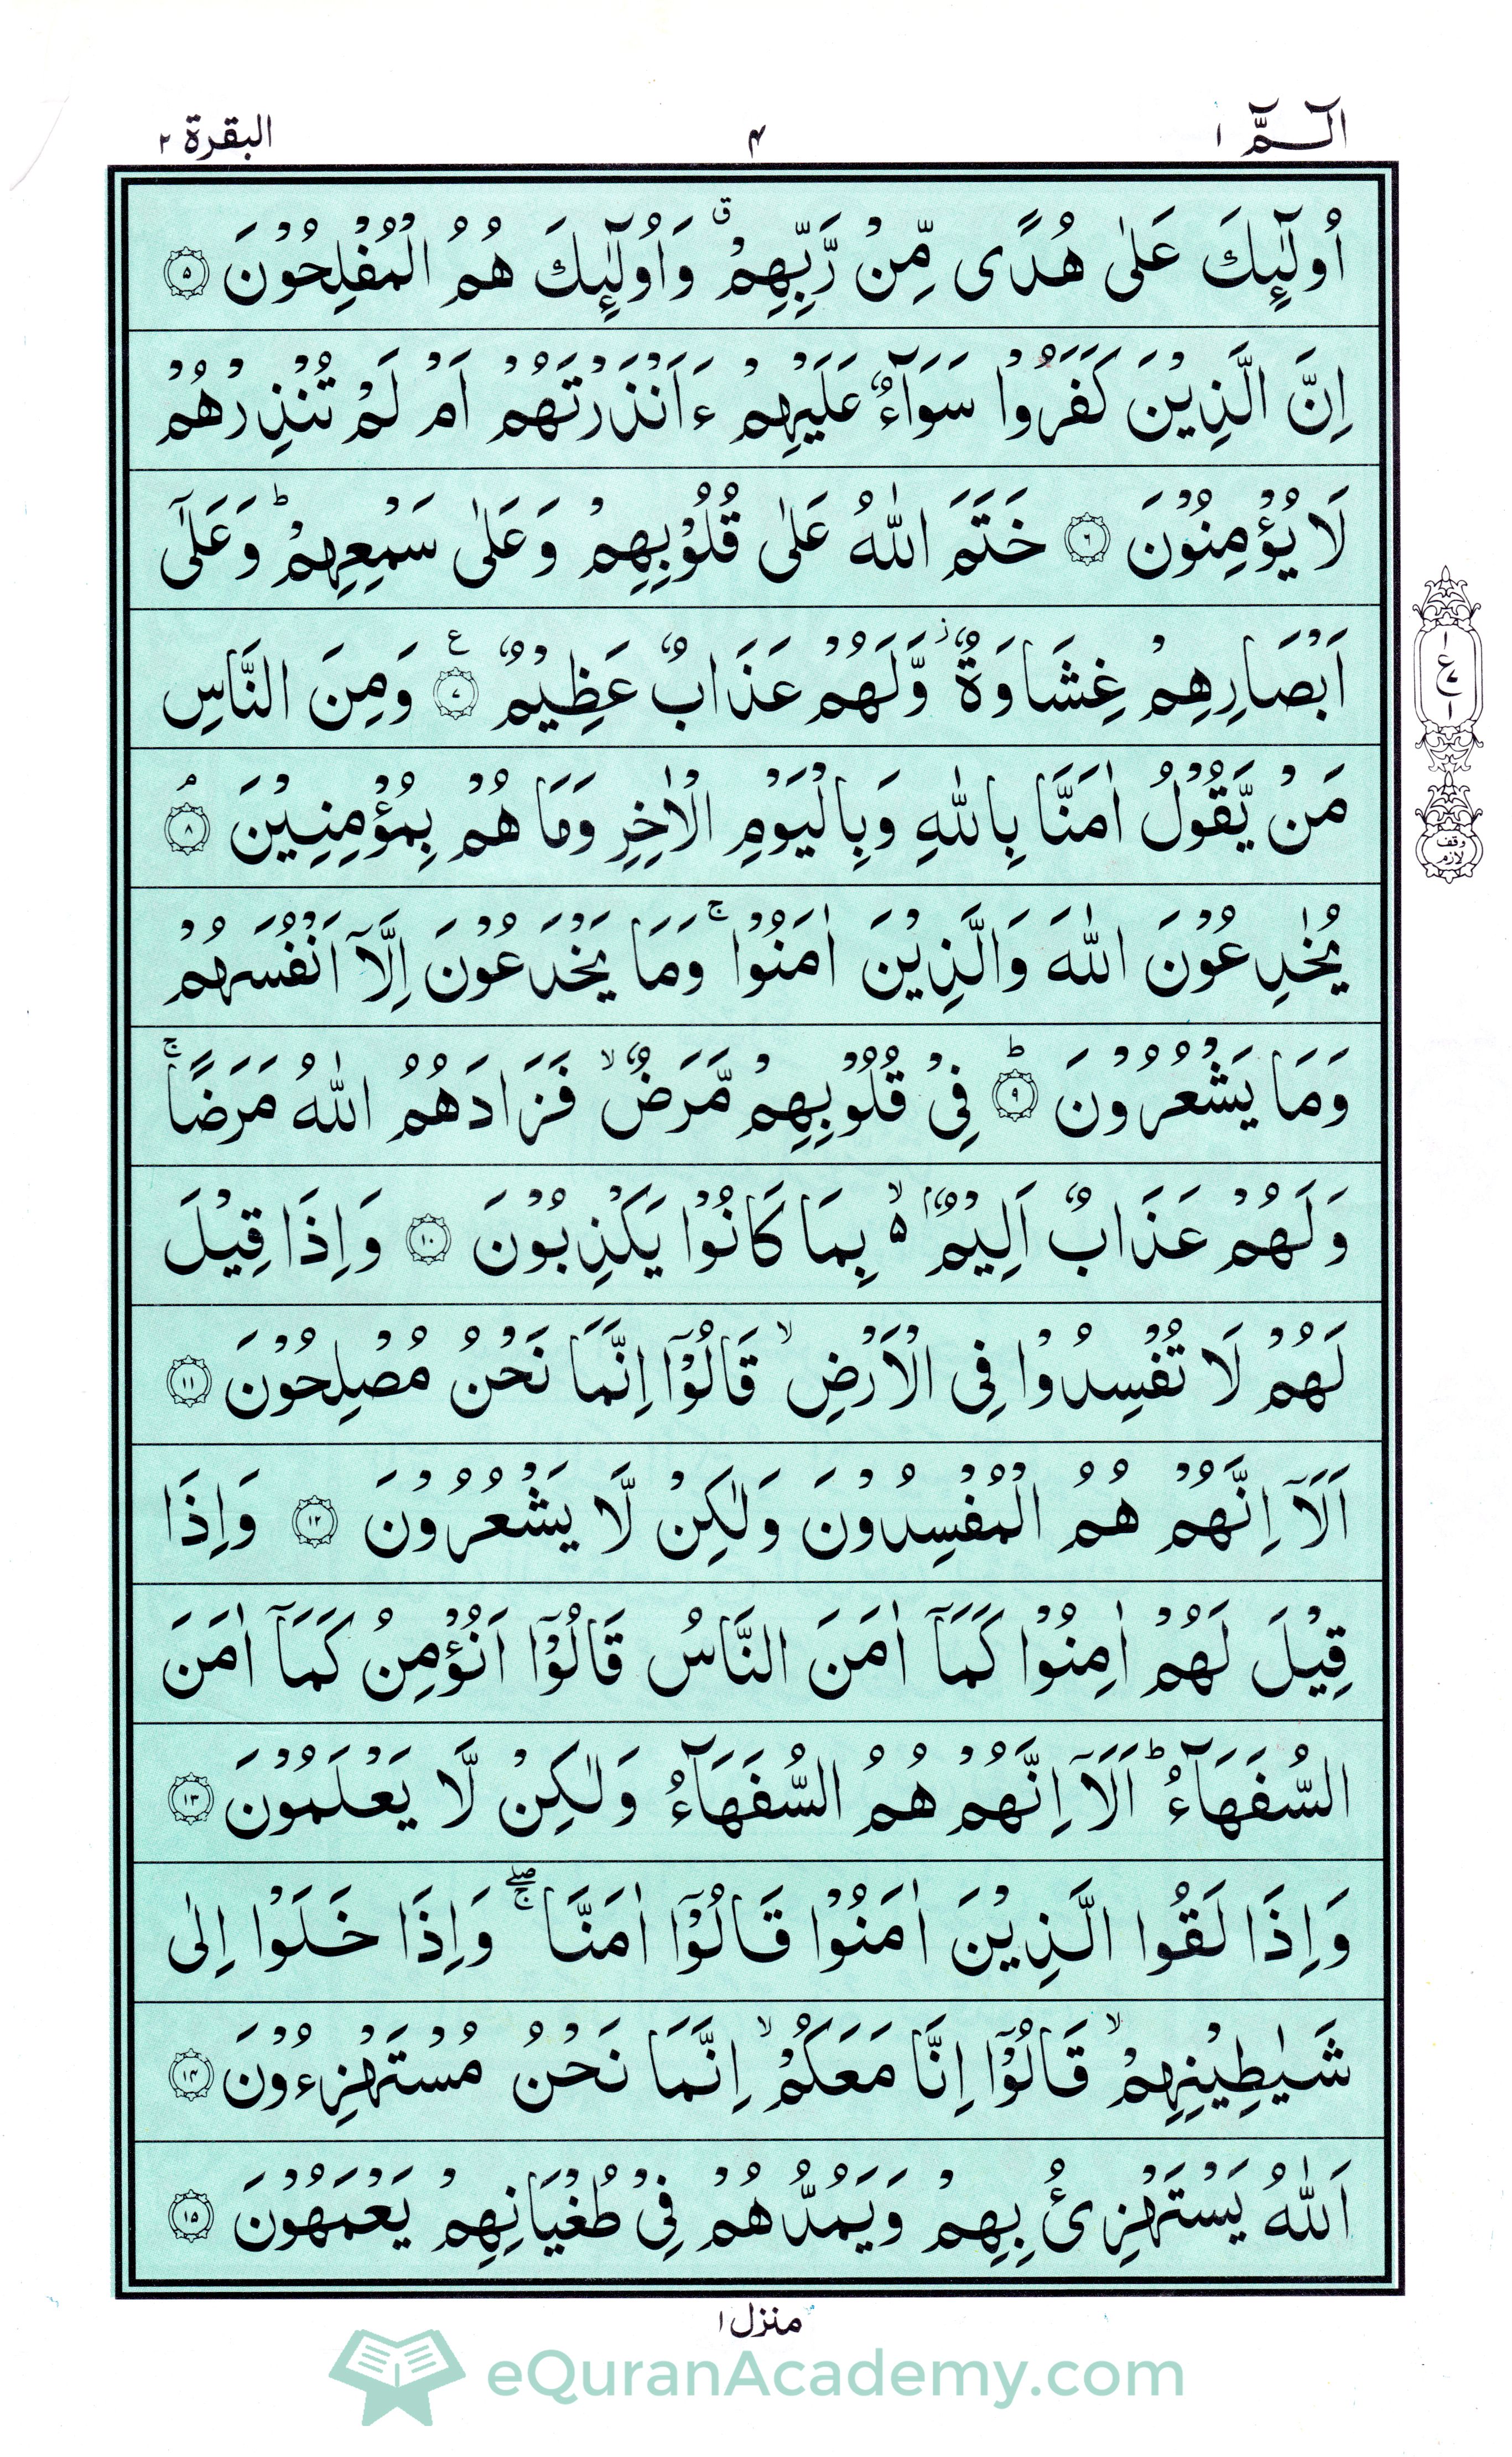 الٓـمّٓ ١
۴
البقرة ۲
اُولٰٓئِكَ عَلٰى هُدًى مِّنْ رَّبِّهِمْ ۗ وَاُولٰٓئِكَ هُمُ الْمُفْلِحُوْنَ ۝۵
اِنَّ الَّذِيْنَ كَفَرُوْا سَوَآءٌ عَلَيْهِمْ ءَاَنْذَرْتَهُمْ اَمْ لَمْ تُنْذِرْهُمْ
لَا يُؤْمِنُوْنَ ۝۶ خَتَمَ اللّٰهُ عَلٰى قُلُوْبِهِمْ وَعَلٰى سَمْعِهِمْ ؕ وَعَلٰٓى
اَبْصَارِهِمْ غِشَاوَةٌ ز وَّلَهُمْ عَذَابٌ عَظِيْمٌ ۝۷ ع وَمِنَ النَّاسِ
مَنْ يَّقُوْلُ اٰمَنَّا بِاللّٰهِ وَبِالْيَوْمِ الْاٰخِرِ وَمَا هُمْ بِمُؤْمِنِيْنَ ۝۸ ۘ
يُخٰدِعُوْنَ اللّٰهَ وَالَّذِيْنَ اٰمَنُوْا ۚ وَمَا يَخْدَعُوْنَ اِلَّاۤ اَنْفُسَهُمْ
وَمَا يَشْعُرُوْنَ ۝۹ ؕ فِيْ قُلُوْبِهِمْ مَّرَضٌ ۙ فَزَادَهُمُ اللّٰهُ مَرَضًا ۚ
وَلَهُمْ عَذَابٌ اَلِيْمٌۢ ۵ۙ بِمَا كَانُوْا يَكْذِبُوْنَ ۝۱۰ وَاِذَا قِيْلَ
لَهُمْ لَا تُفْسِدُوْا فِى الْاَرْضِ ۙ قَالُوْۤا اِنَّمَا نَحْنُ مُصْلِحُوْنَ ۝۱۱
اَلَاۤ اِنَّهُمْ هُمُ الْمُفْسِدُوْنَ وَلٰكِنْ لَّا يَشْعُرُوْنَ ۝۱۲ وَاِذَا
قِيْلَ لَهُمْ اٰمِنُوْا كَمَاۤ اٰمَنَ النَّاسُ قَالُوْۤا اَنُؤْمِنُ كَمَاۤ اٰمَنَ
السُّفَهَآءُ ؕ اَلَاۤ اِنَّهُمْ هُمُ السُّفَهَآءُ وَلٰكِنْ لَّا يَعْلَمُوْنَ ۝۱۳
وَاِذَا لَقُوا الَّذِيْنَ اٰمَنُوْا قَالُوْۤا اٰمَنَّا ۖۚ وَاِذَا خَلَوْا اِلٰى
شَيٰطِيْنِهِمْ ۙ قَالُوْۤا اِنَّا مَعَكُمْ ۙ اِنَّمَا نَحْنُ مُسْتَهْزِءُوْنَ ۝۱۴
اَللّٰهُ يَسْتَهْزِئُ بِهِمْ وَيَمُدُّهُمْ فِيْ طُغْيَانِهِمْ يَعْمَهُوْنَ ۝۱۵
١
ع ٧
١
وقف
لازم
منزل ١
eQuranAcademy.com